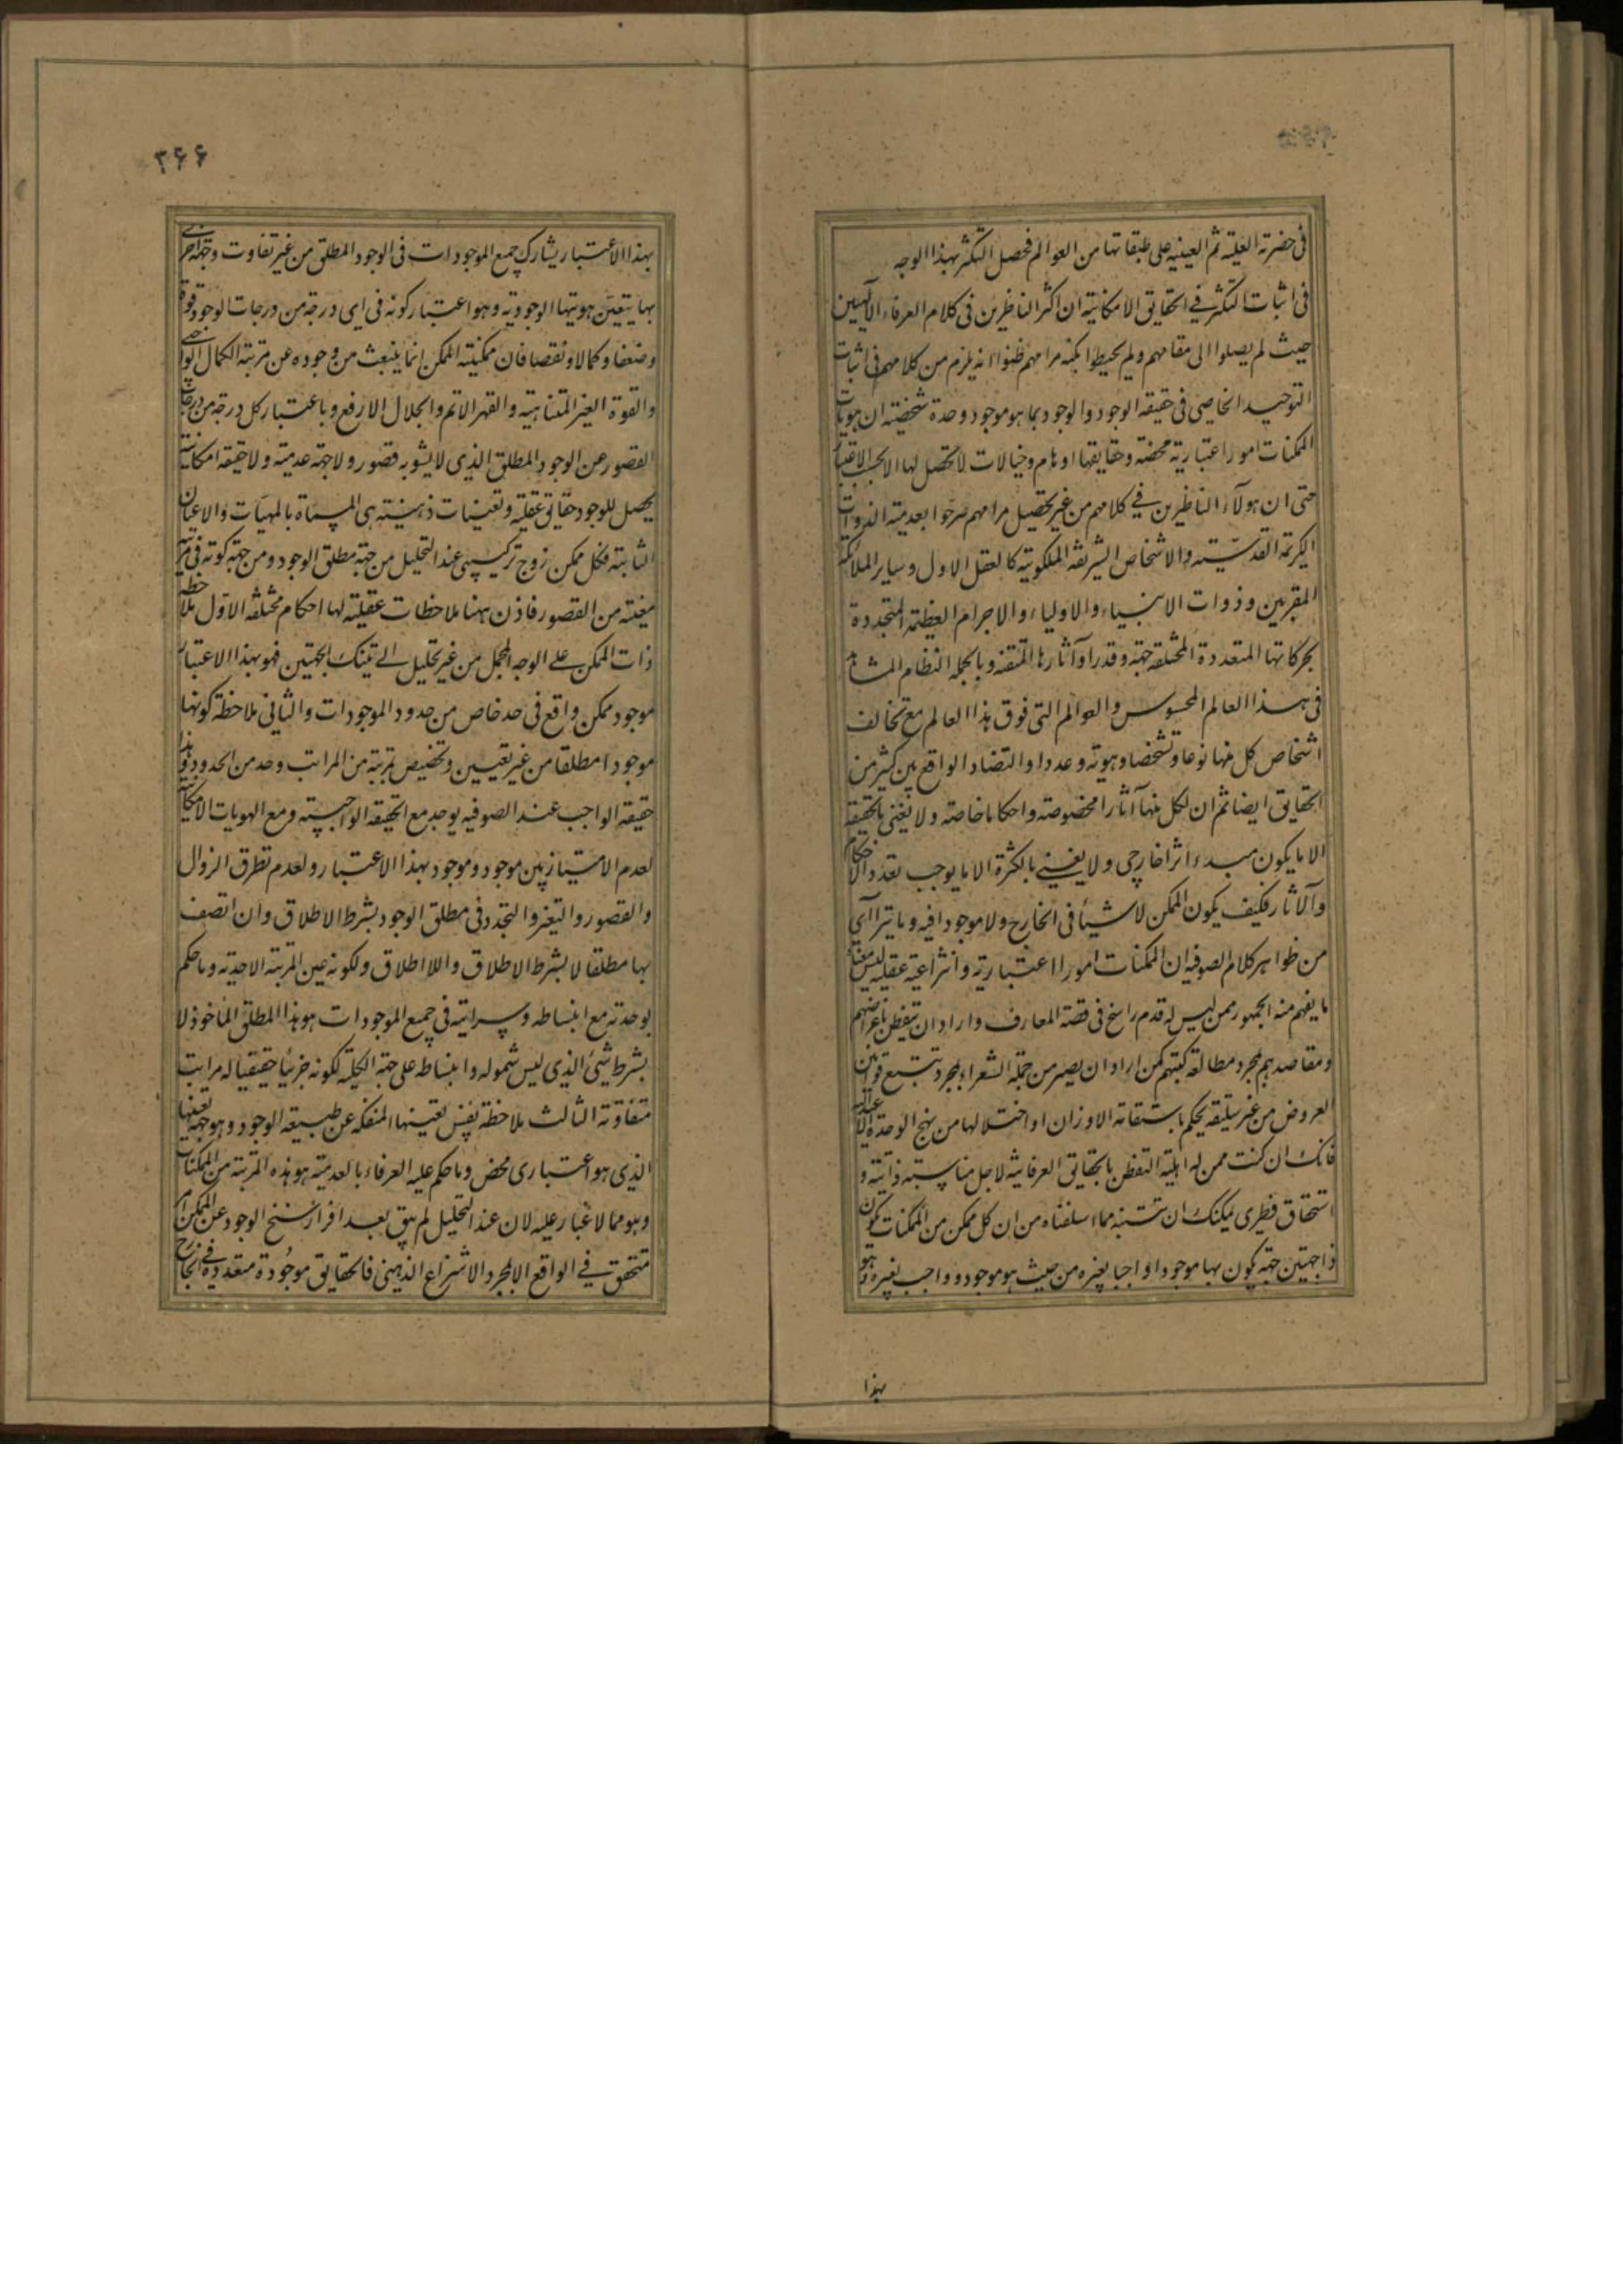 فی حضرته العلمیة ثم العینیه علی طبقاتها من العوالم فحصل التکثر بهذا الوجه
فی اثبات التکثر فی الحقایق الامکانیة ان اکثر الناظرین فی کلام العرفاء الالهیین
حیث لم یصلوا الی مقامهم ولم یحیطوا بکنه مرامهم ظنوا انه یلزم من کلامهم فی اثبات
التوحید الخاصی فی حقیقه الوجود والوجود بما هو موجود وحدة شخصیة ان هویات
الممکنات امورا اعتباریة محضة وحقایقها اوهام وخیالات لا تحصل لها الا بحسب الاعتبار
حتی ان هولآء الناظرین فی کلامهم من غیر تحصیل مرامهم صرحوا بعدمیة الذوات
الکریمة القدسیة والاشخاص الشریفه الملکوتیة کالعقل الاول وسایر الملائکة
المقربین وذوات الانبیاء والاولیاء والاجرام العظیمة المتجددة
بحرکاتها المتعددة المختلفه جهة وقدرا وآثارها المتقنه وبالجمله النظام المشاهد
فی هذا العالم المحسوس والعوالم التی فوق هذا العالم مع تخالف
اشخاص کل منها نوعا وتشخصا وهویة وعددا والتضاد الواقع بین کثیر من
الحقایق ایضا ثم ان لکل منها آثارا مخصوصة واحکاما خاصة ولا یعنی بالحقیقة
الا ما یکون مبدء اثر خارجی ولا یعنی بالکثرة الا ما یوجب تعدد الاحکام
والآثار فکیف یکون الممکن لا شیئا فی الخارج ولا موجودا فیه وما یتراآی
من ظواهر کلام الصوفیه ان الممکنات امورا اعتباریة وانتزاعیة عقلیه لیس معناه
ما یفهم منه الجمهور ممن لیس له قدم راسخ فی قصة المعارف واراد ان یتفطن باغراضهم
ومقاصدهم بمجرد مطالعة کتبهم کمن اراد ان یصیر من جملة الشعراء بمجرد تتبع قوانین
العروض من غیر سلیقه یحکم باستقامة الاوزان او اختلالها من نهج الوحدة الاعتدالیه
فانک ان کنت ممن له اهلیة التفطن بالحقایق العرفانیة لاجل مناسبة ذاتیة و
استحقاق فطری یمکنک ان تتنبه مما اسلفناه من ان کل ممکن من الممکنات یکون
ذا جهتین جهة یکون بها موجودا واجبا بغیره من حیث هو موجود وواجب بغیره وهو
بهذا
۳۶۶
بهذا الاعتبار یشارک جمیع الموجودات فی الوجود المطلق من غیر تفاوت وجهة اخری
بها یتعین هویتها الوجودیة وهو اعتبار کونه فی ای درجة من درجات الوجود قوة
وضعفا وکمالا ونقصا فان ممکنیة الممکن انما ینبعث من وجوده عن مرتبة الکمال الواجبی
والقوة الغیر المتناهیة والقهر الاتم والجلال الارفع وباعتبار کل درجة من درجات
القصور عن الوجود المطلق الذی لا یشوبه قصور ولا جهة عدمیة ولا حیثیة امکانیة
یحصل للوجود حقایق عقلیة وتعینات ذهنیة هی المسماة بالمهیات والاعیان
الثابتة فکل ممکن زوج ترکیبی عند التحلیل من جهة مطلق الوجود ومن جهة کونه فی مرتبة
معینة من القصور فاذن ههنا ملاحظات عقلیة لها احکام مختلفة الاول ملاحظه
ذات الممکن علی الوجه المجمل من غیر تحلیل الی تینک الجهتین فهو بهذا الاعتبار
موجود ممکن واقع فی حد خاص من حدود الموجودات والثانی ملاحظة کونها
موجودا مطلقا من غیر تعیین وتخصیص بمرتبة من المراتب وحد من الحدود وهذا
حقیقة الواجب عند الصوفیه یوجد مع الحقیقه الواجبیة ومع الهویات الامکانیة
لعدم الامتیاز بین موجود وموجود بهذا الاعتبار ولعدم تطرق الزوال
والقصور والتغیر والتجدد فی مطلق الوجود بشرط الاطلاق وان اتصف
بها مطلقا لا بشرط الاطلاق واللا اطلاق ولکونه عین المرتبة الاحدیة وما حکم
بوحدته مع انبساطه وسرایته فی جمیع الموجودات هو هذا المطلق الماخوذ لا
بشرط شیئ الذی لیس شموله وانبساطه علی جهة الکلیة لکونه جزئیا حقیقیا له مراتب
متفاوتة الثالث ملاحظة نفس تعینها المنفکه عن طبیعة الوجود وهو جهة تعینها
الذی هو اعتباری محض وما حکم علیه العرفاء بالعدمیة هو هذه المرتبة من الممکنات
وهو مما لا غبار علیه لان عند التحلیل لم یبق بعد افراز سنخ الوجود عن الممکن امر
متحقق فی الواقع الا بمجرد الانتزاع الذهنی فالحقایق موجودة متعددة فی الخارج